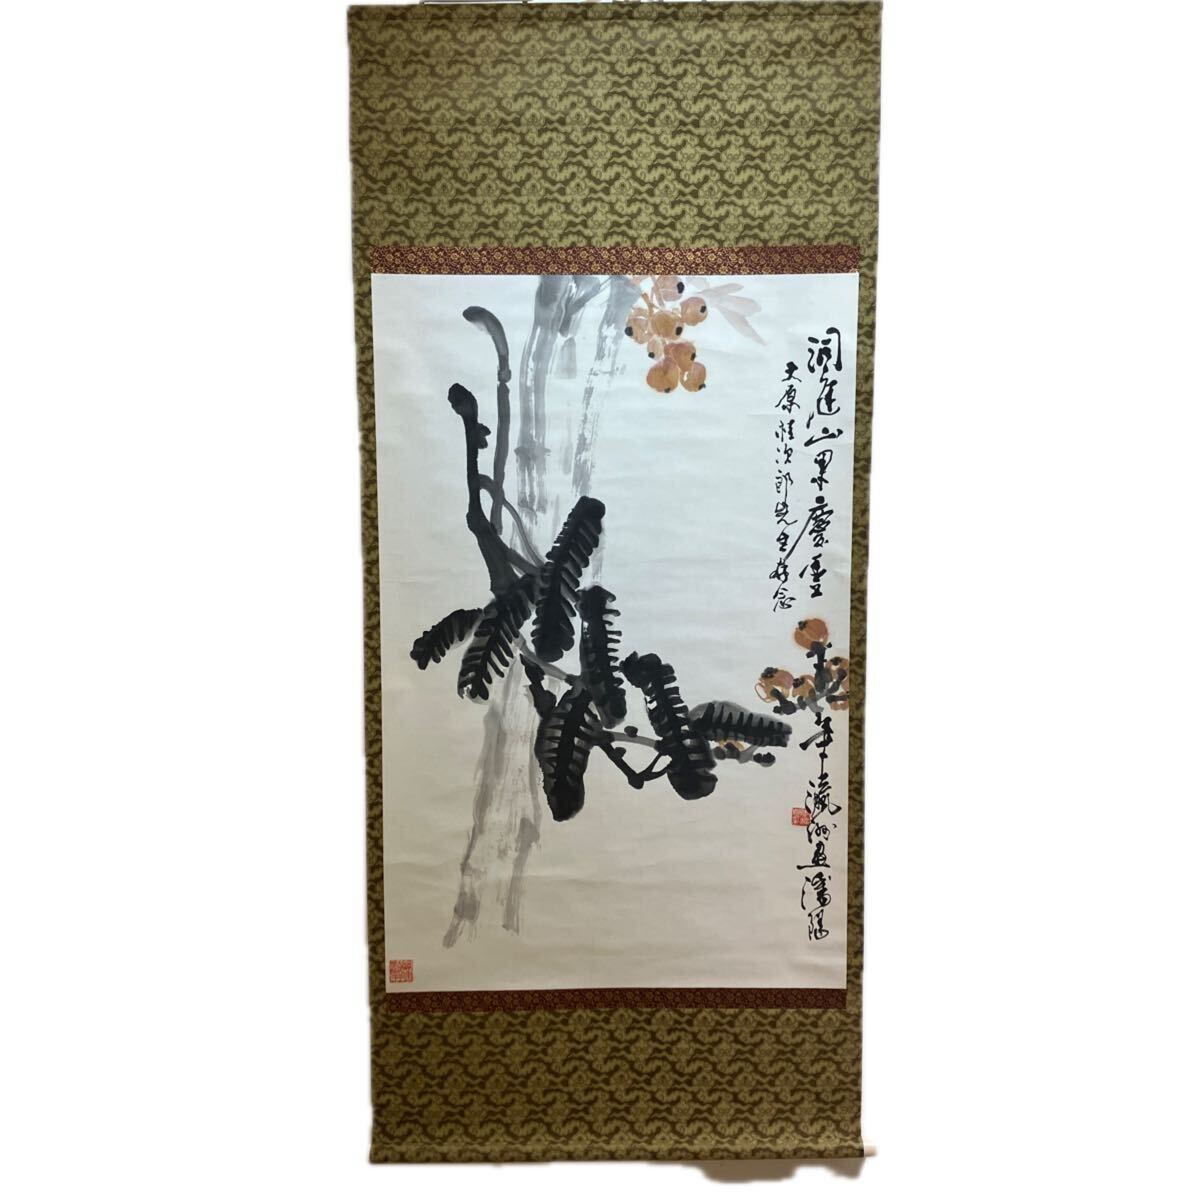 洞庭山果慶豐年瀛洲画瀋陽
大原桂次郎先生存念